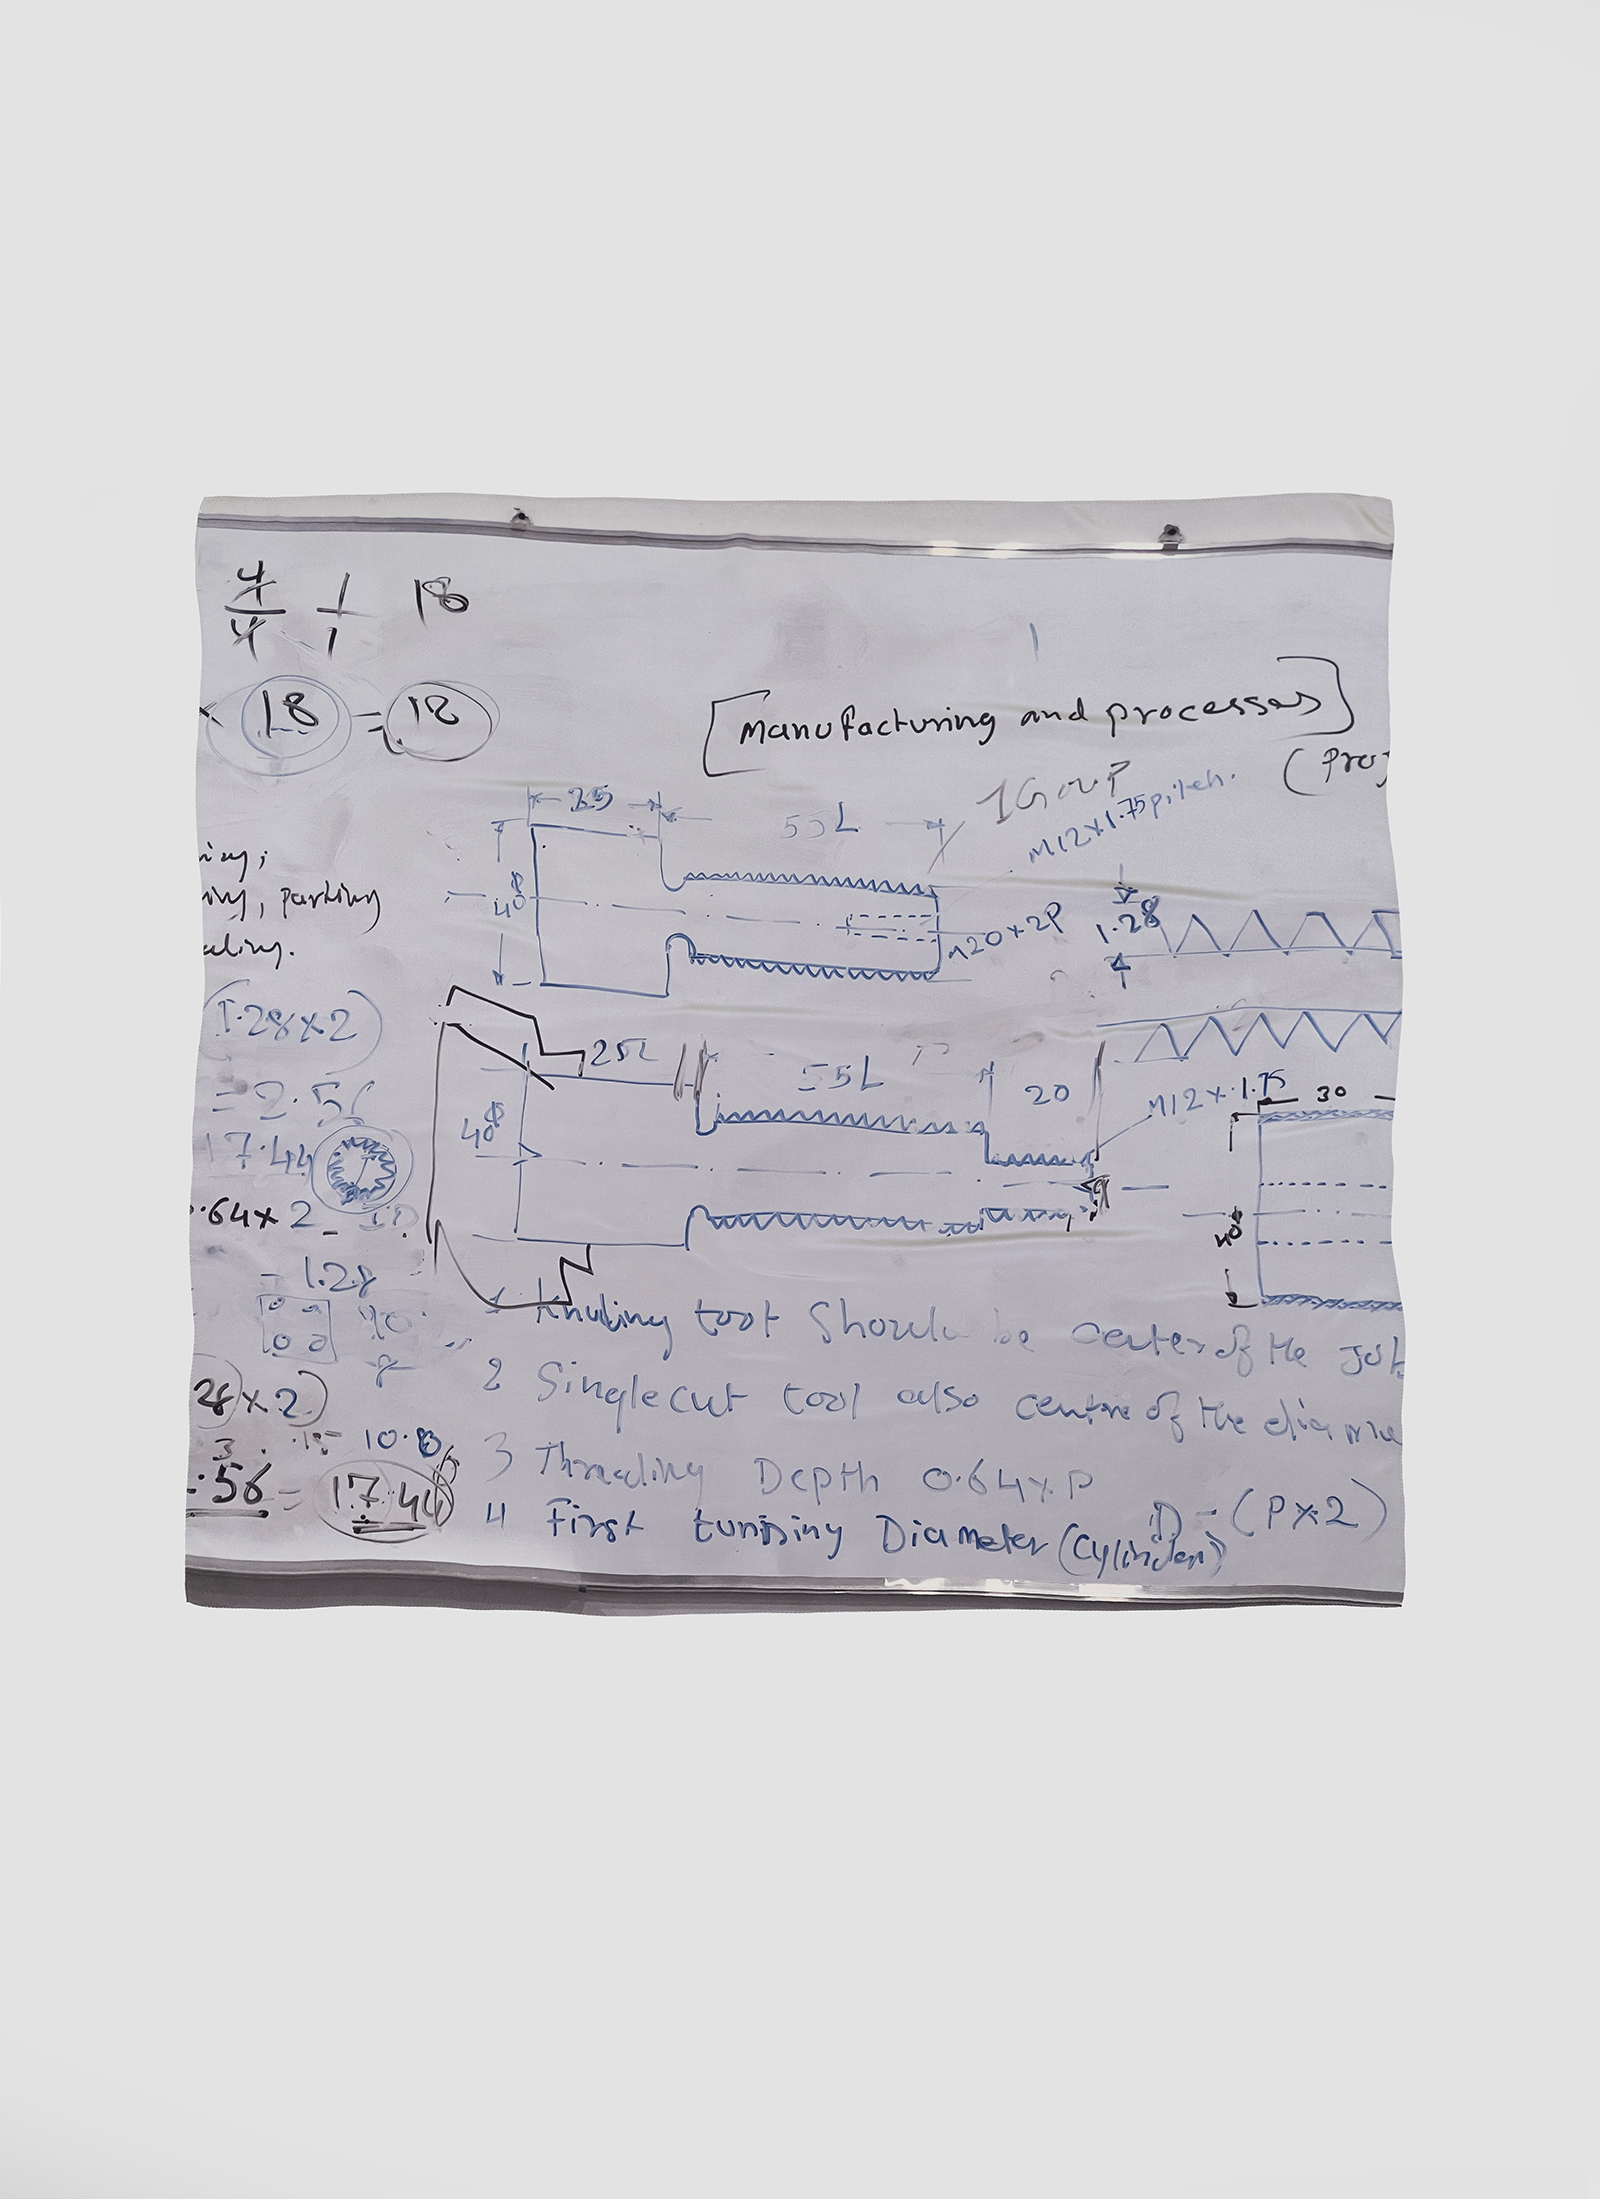 4/4 1/1 18
× 18 = 18
[Manufacturing and processes]
(Proj
1 Group
M12×1.75 pitch.
25
55L
40ϕ
M20×2P
1.28
ing, parting
(1.28×2)
= 2.56
17.44
.64×2
- 1.28
28)×2)
10.8
.56 = 17.44
25L
55L
20
M12×1.75
40ϕ
30
40ϕ
1 Knuling tool Should be center of the Job
2 Single cut tool also centre of the diame
3 Threading Depth 0.64×P
4 First tunising Diameter (Cylinder) D - (P×2)